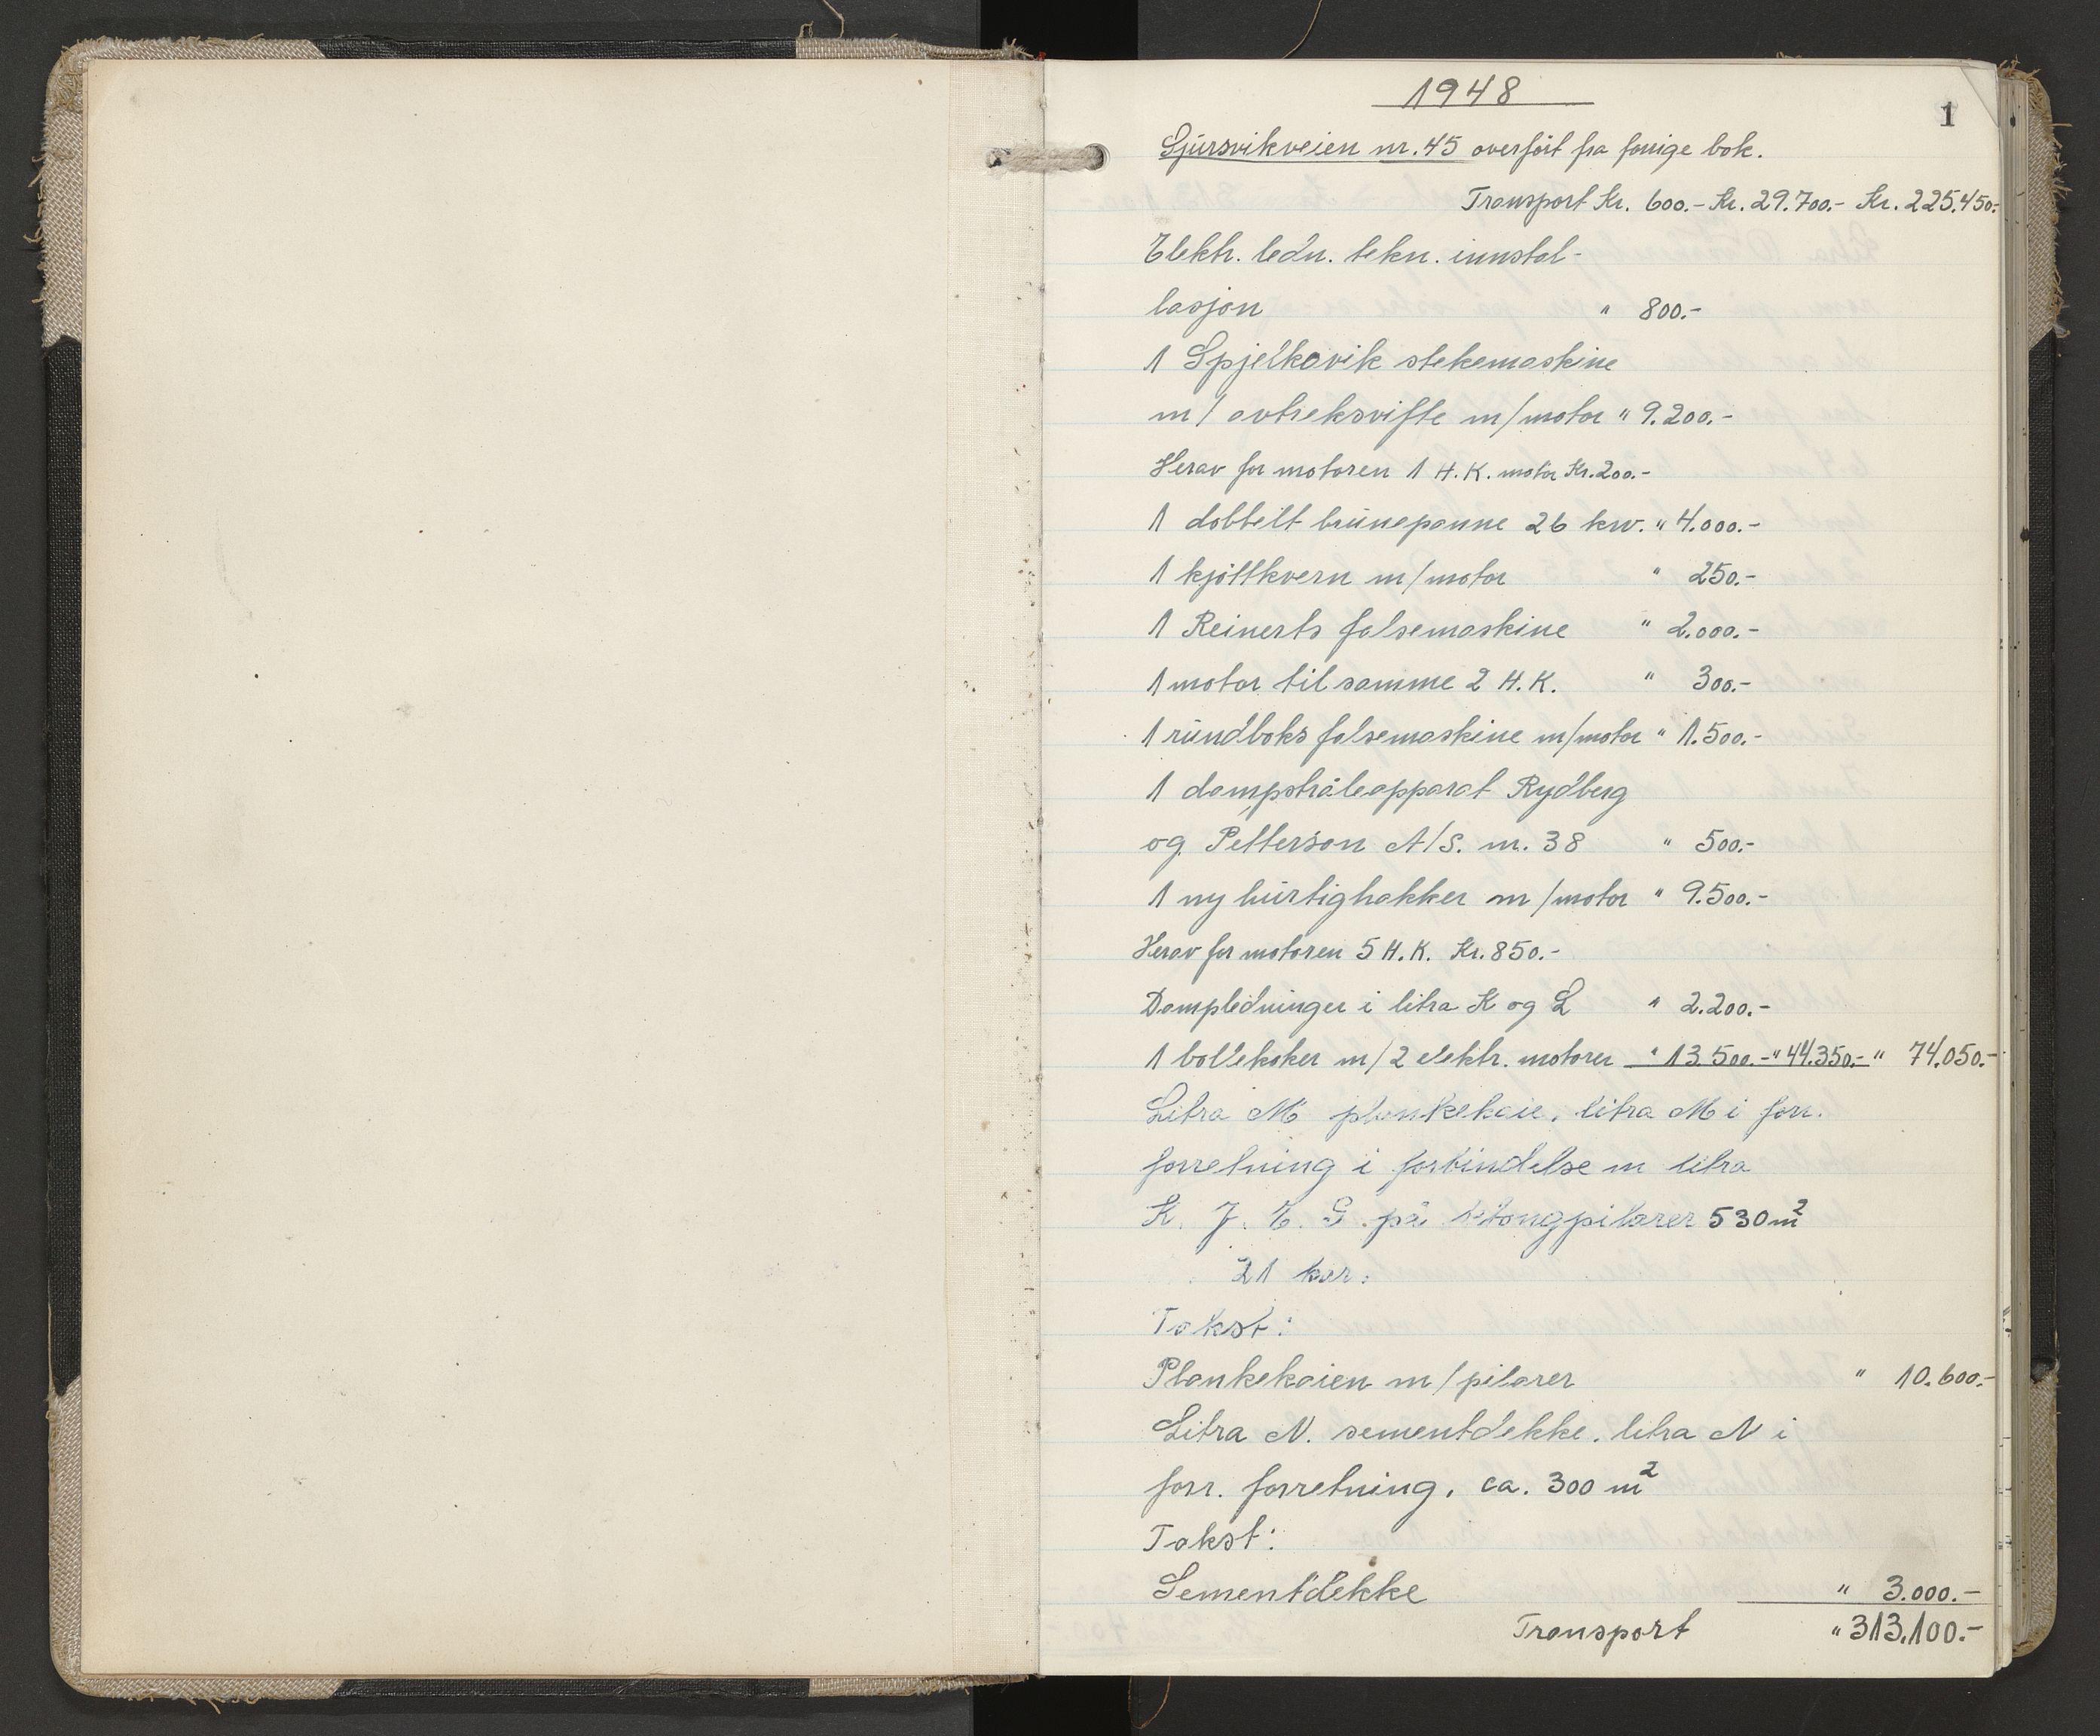 1948
1
Sjúrsvikveien nr. 45 overført fra forrige bok.
Transport Kr. 600.- Kr. 29.700.- Kr. 225.450.-
Elektr. ledn. tekn. innstal-
lasjon " 800.-
1 Spjelkavik stekemaskine
m/ avtreksvifte m/motor " 9.200.-
Herav for motoren 1 H.K. motor Kr. 200.-
1 dobbelt brúnepanne 26 kw. " 4.000.-
1 kjøttkvern m/motor " 250.-
1 Reinerts falsemaskine " 2.000.-
1 motor til samme 2 H.K. " 300.-
1 rúndboks falsemaskine m/motor " 1.500.-
1 dampstråleapparat Rydberg
og Petterson A/S. nr. 38 " 500.-
1 ny húrtighakker m/motor " 9.500.-
Herav for motoren 5 H.K. Kr. 850.-
Dampledninger i litra K og L " 2.200.-
1 bollekoker m/2 elektr. motorer " 13.500.- " 44.350.- " 74.050.-
Litra M plankekaie, litra M i forr.
forretning i forbindelse m litra
K. J. E. G. på betongpilarer 530 m²
21 kar.
Takst:
Plankekaien m/pilarer " 10.600.-
Litra N. sementdekke, litra N i
forr. forretning, ca. 300 m²
Takst:
Sementdekke " 3.000.-
Transport " 313.100.-